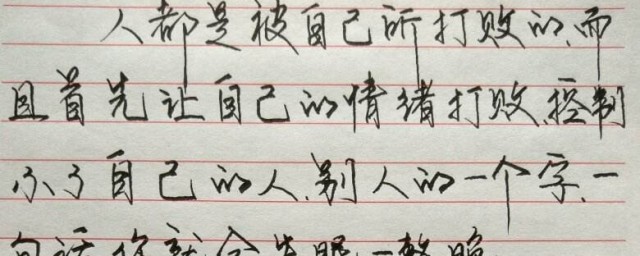 人都是被自己所打败的.而
且首先让自己的情绪打败.控制
不了自己的人.别人的一个字.一
句话你就会失眠一整晚